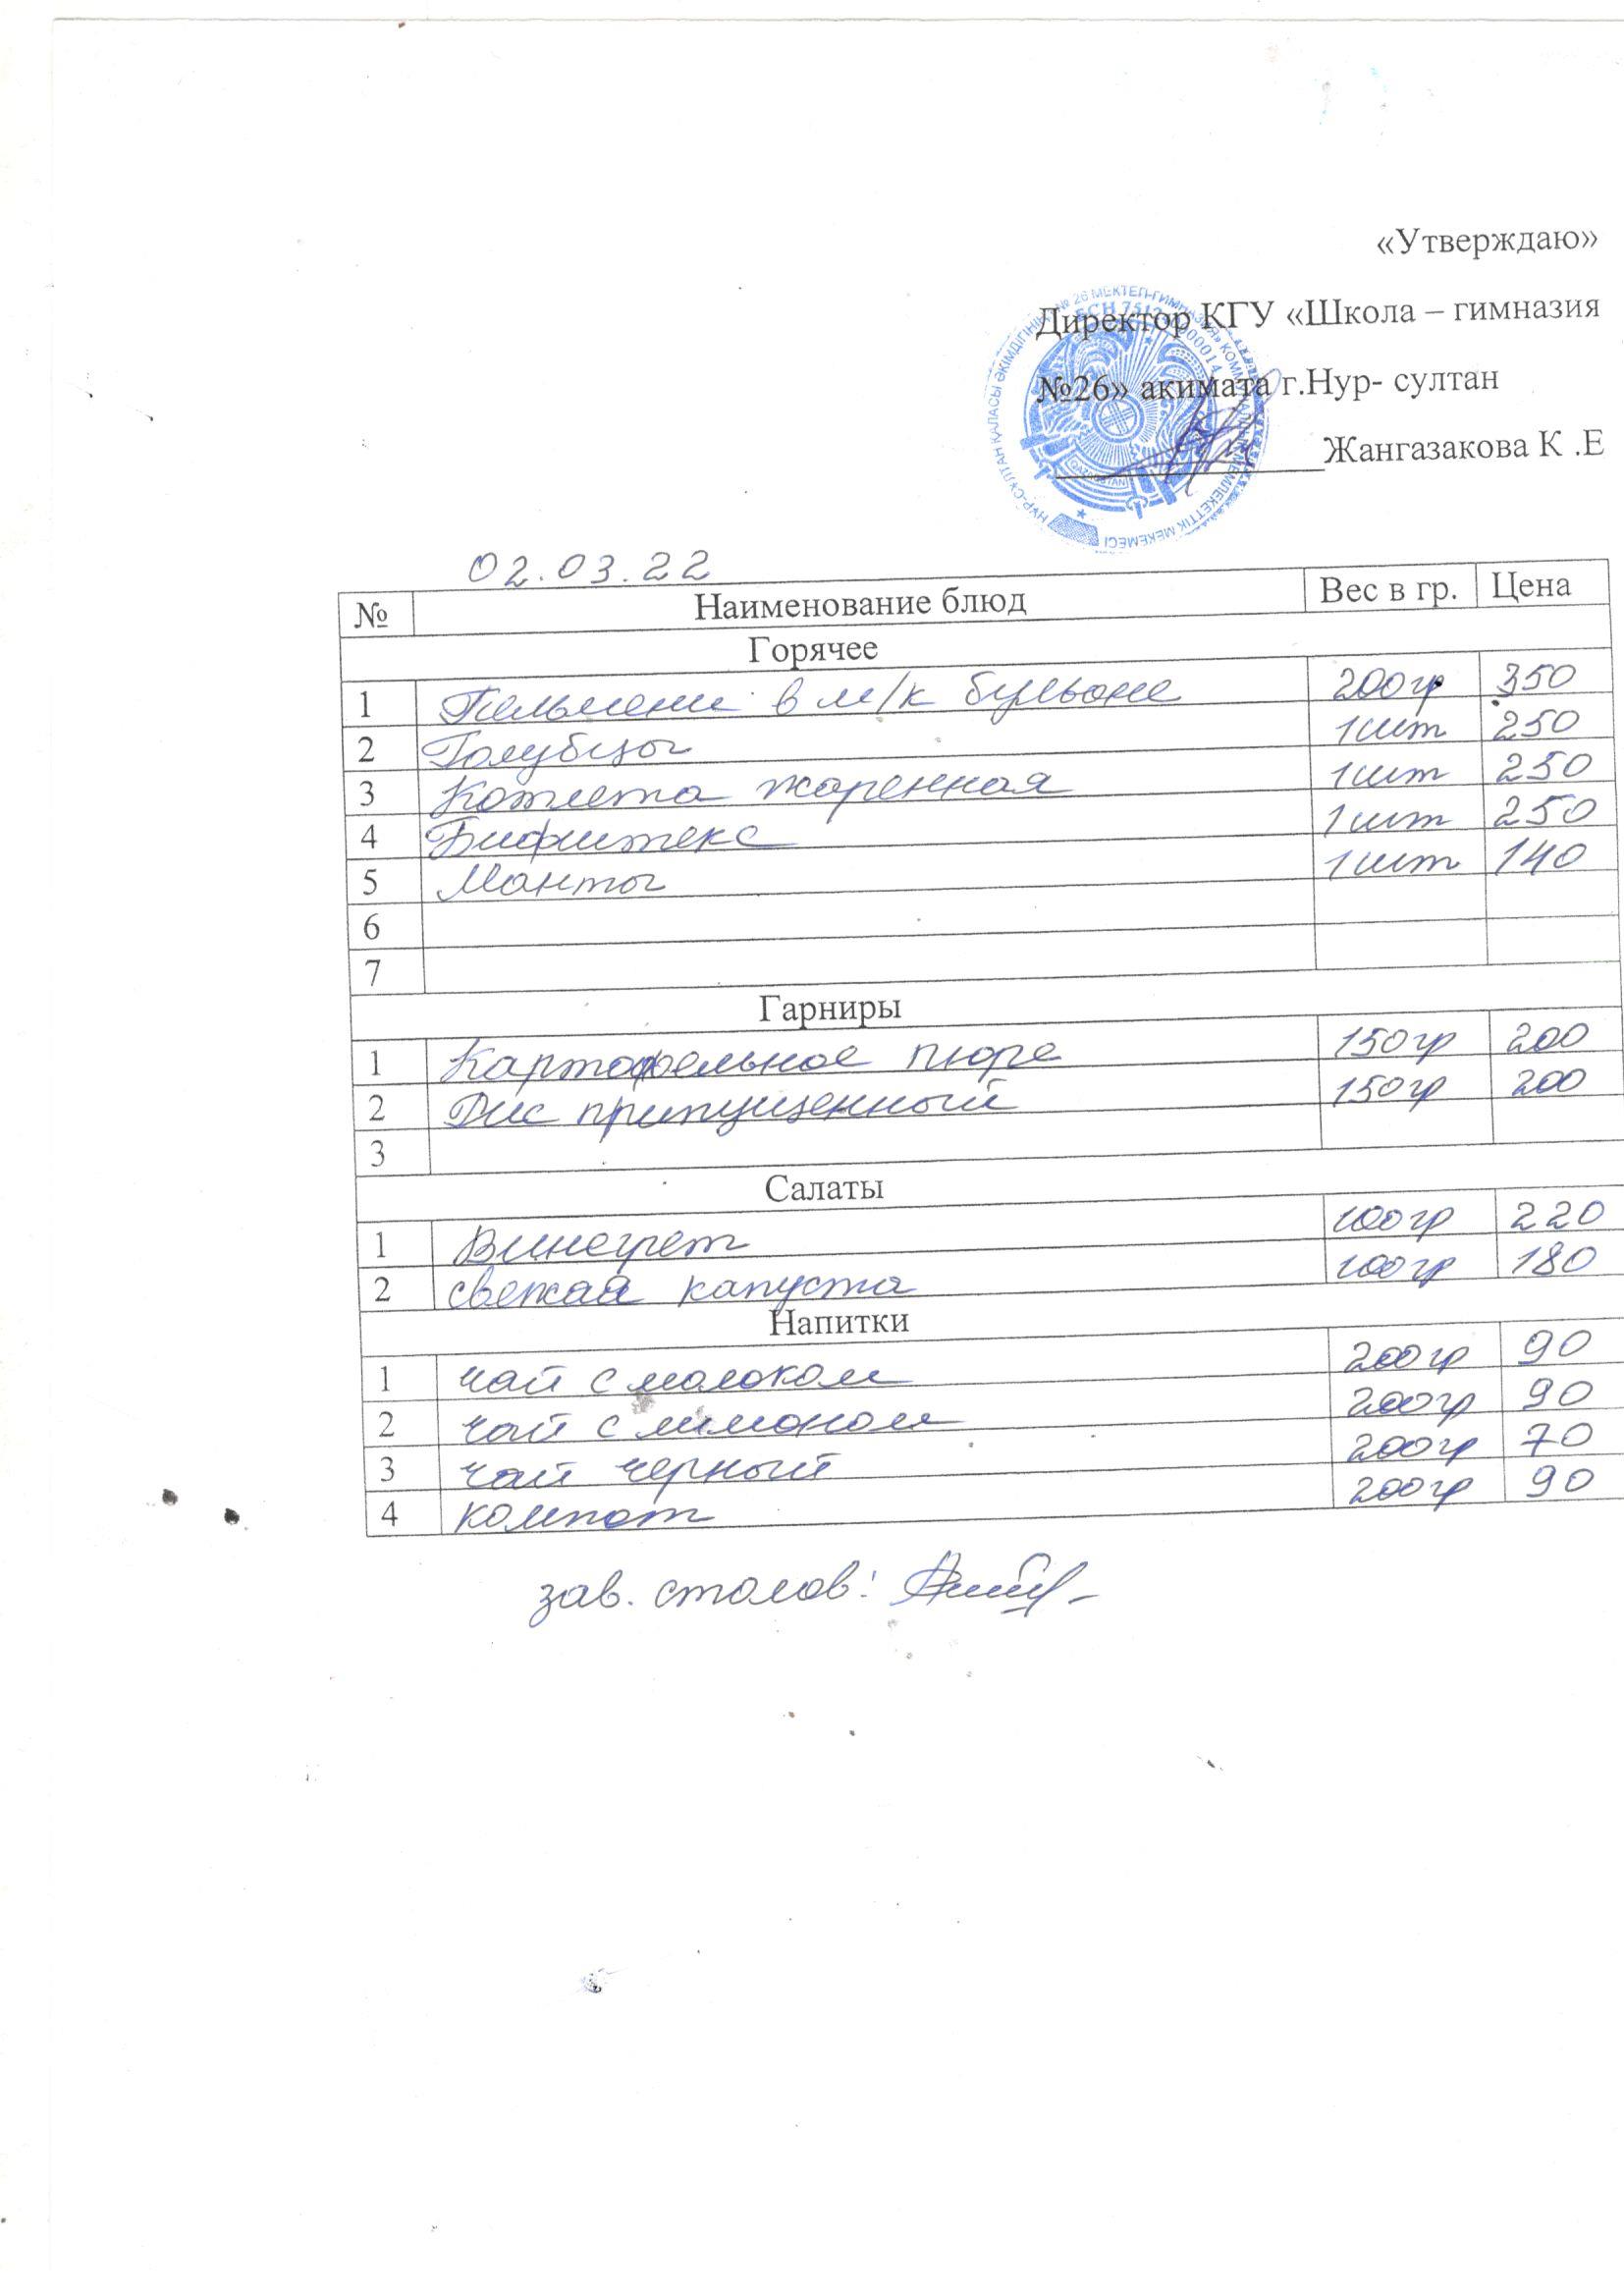 «Утверждаю»
Директор КГУ «Школа – гимназия
№26» акимата г.Нур- султан
Жангазакова К .Е
02.03.22
№ Наименование блюд Вес в гр. Цена
Горячее
1 Пельмени в м/к бульоне 200гр 350
2 Голубцы 1шт 250
3 Котлета жаренная 1шт 250
4 Бифштекс 1шт 250
5 Манты 1шт 140
6
7
Гарниры
1 Картофельное пюре 150гр 200
2 Рис припущенный 150гр 200
3
Салаты
1 Винегрет 100гр 220
2 свежая капуста 100гр 180
Напитки
1 чай с молоком 200гр 90
2 чай с лимоном 200гр 90
3 чай черный 200гр 70
4 компот 200гр 90
зав. столов: